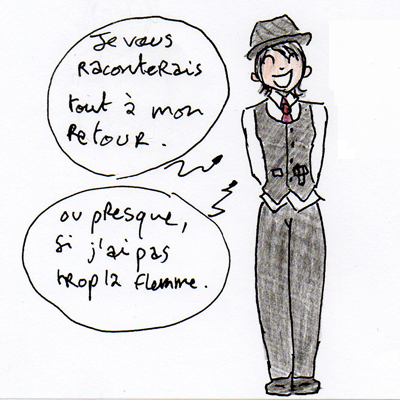 Je vous
Raconterais
tout à mon
Retour.
ou presque,
si j'ai pas
trop la flemme.